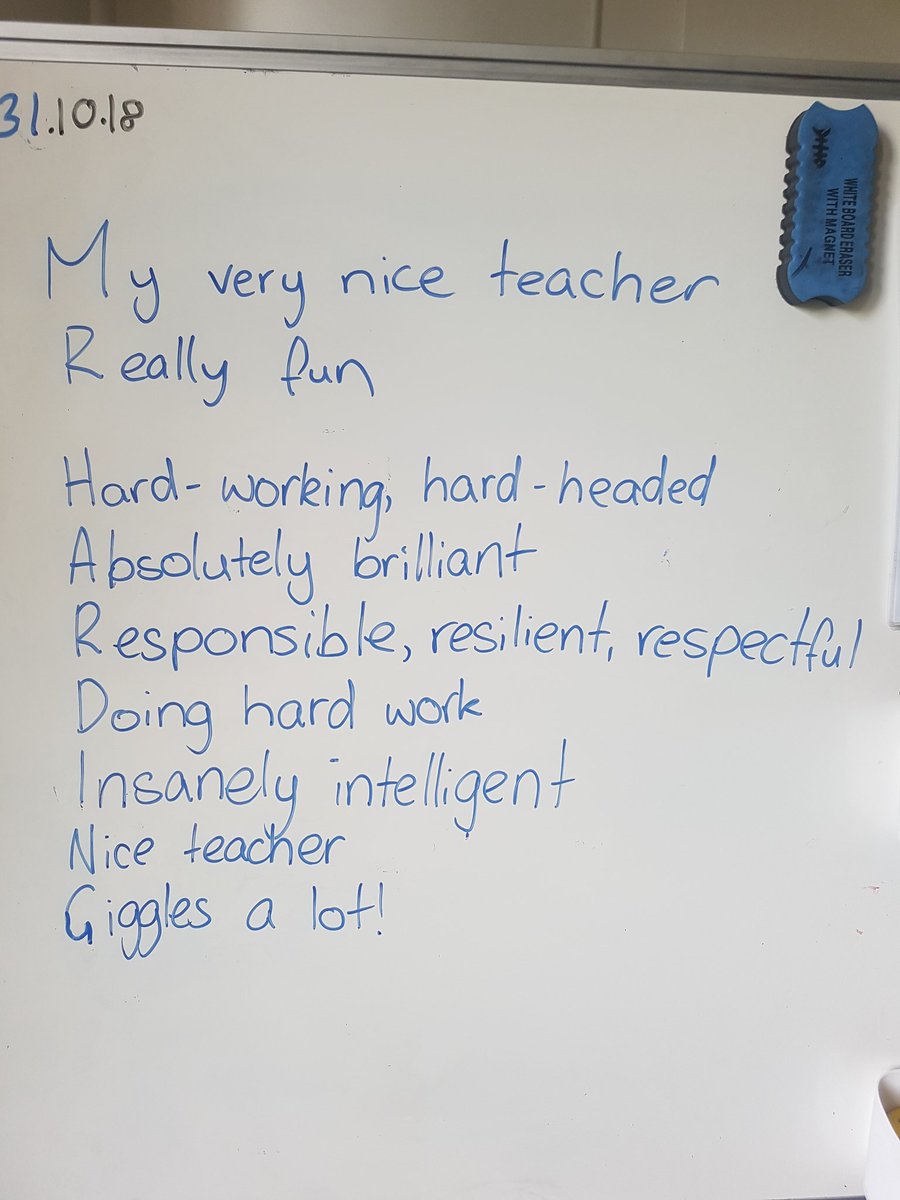 31.10.18
WHITE BOARD ERASER
WITH MAGNET
My very nice teacher
Really fun
Hard-working, hard-headed
Absolutely brilliant
Responsible, resilient, respectful
Doing hard work
Insanely intelligent
Nice teacher
Giggles a lot!